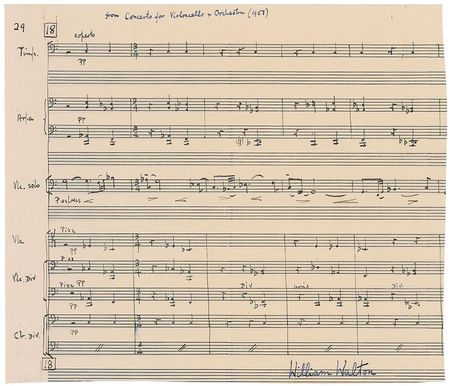 from Concerto for Violoncello & Orchestra (1957)
29
18
Timp.
coperto
pp
Arpa
pp
Vlc. solo
Vle
Pizz
pp
Vlc. Div
Pizz
Pizz pp
Div
unis
Div
Cb. Div.
pp
18
William Walton